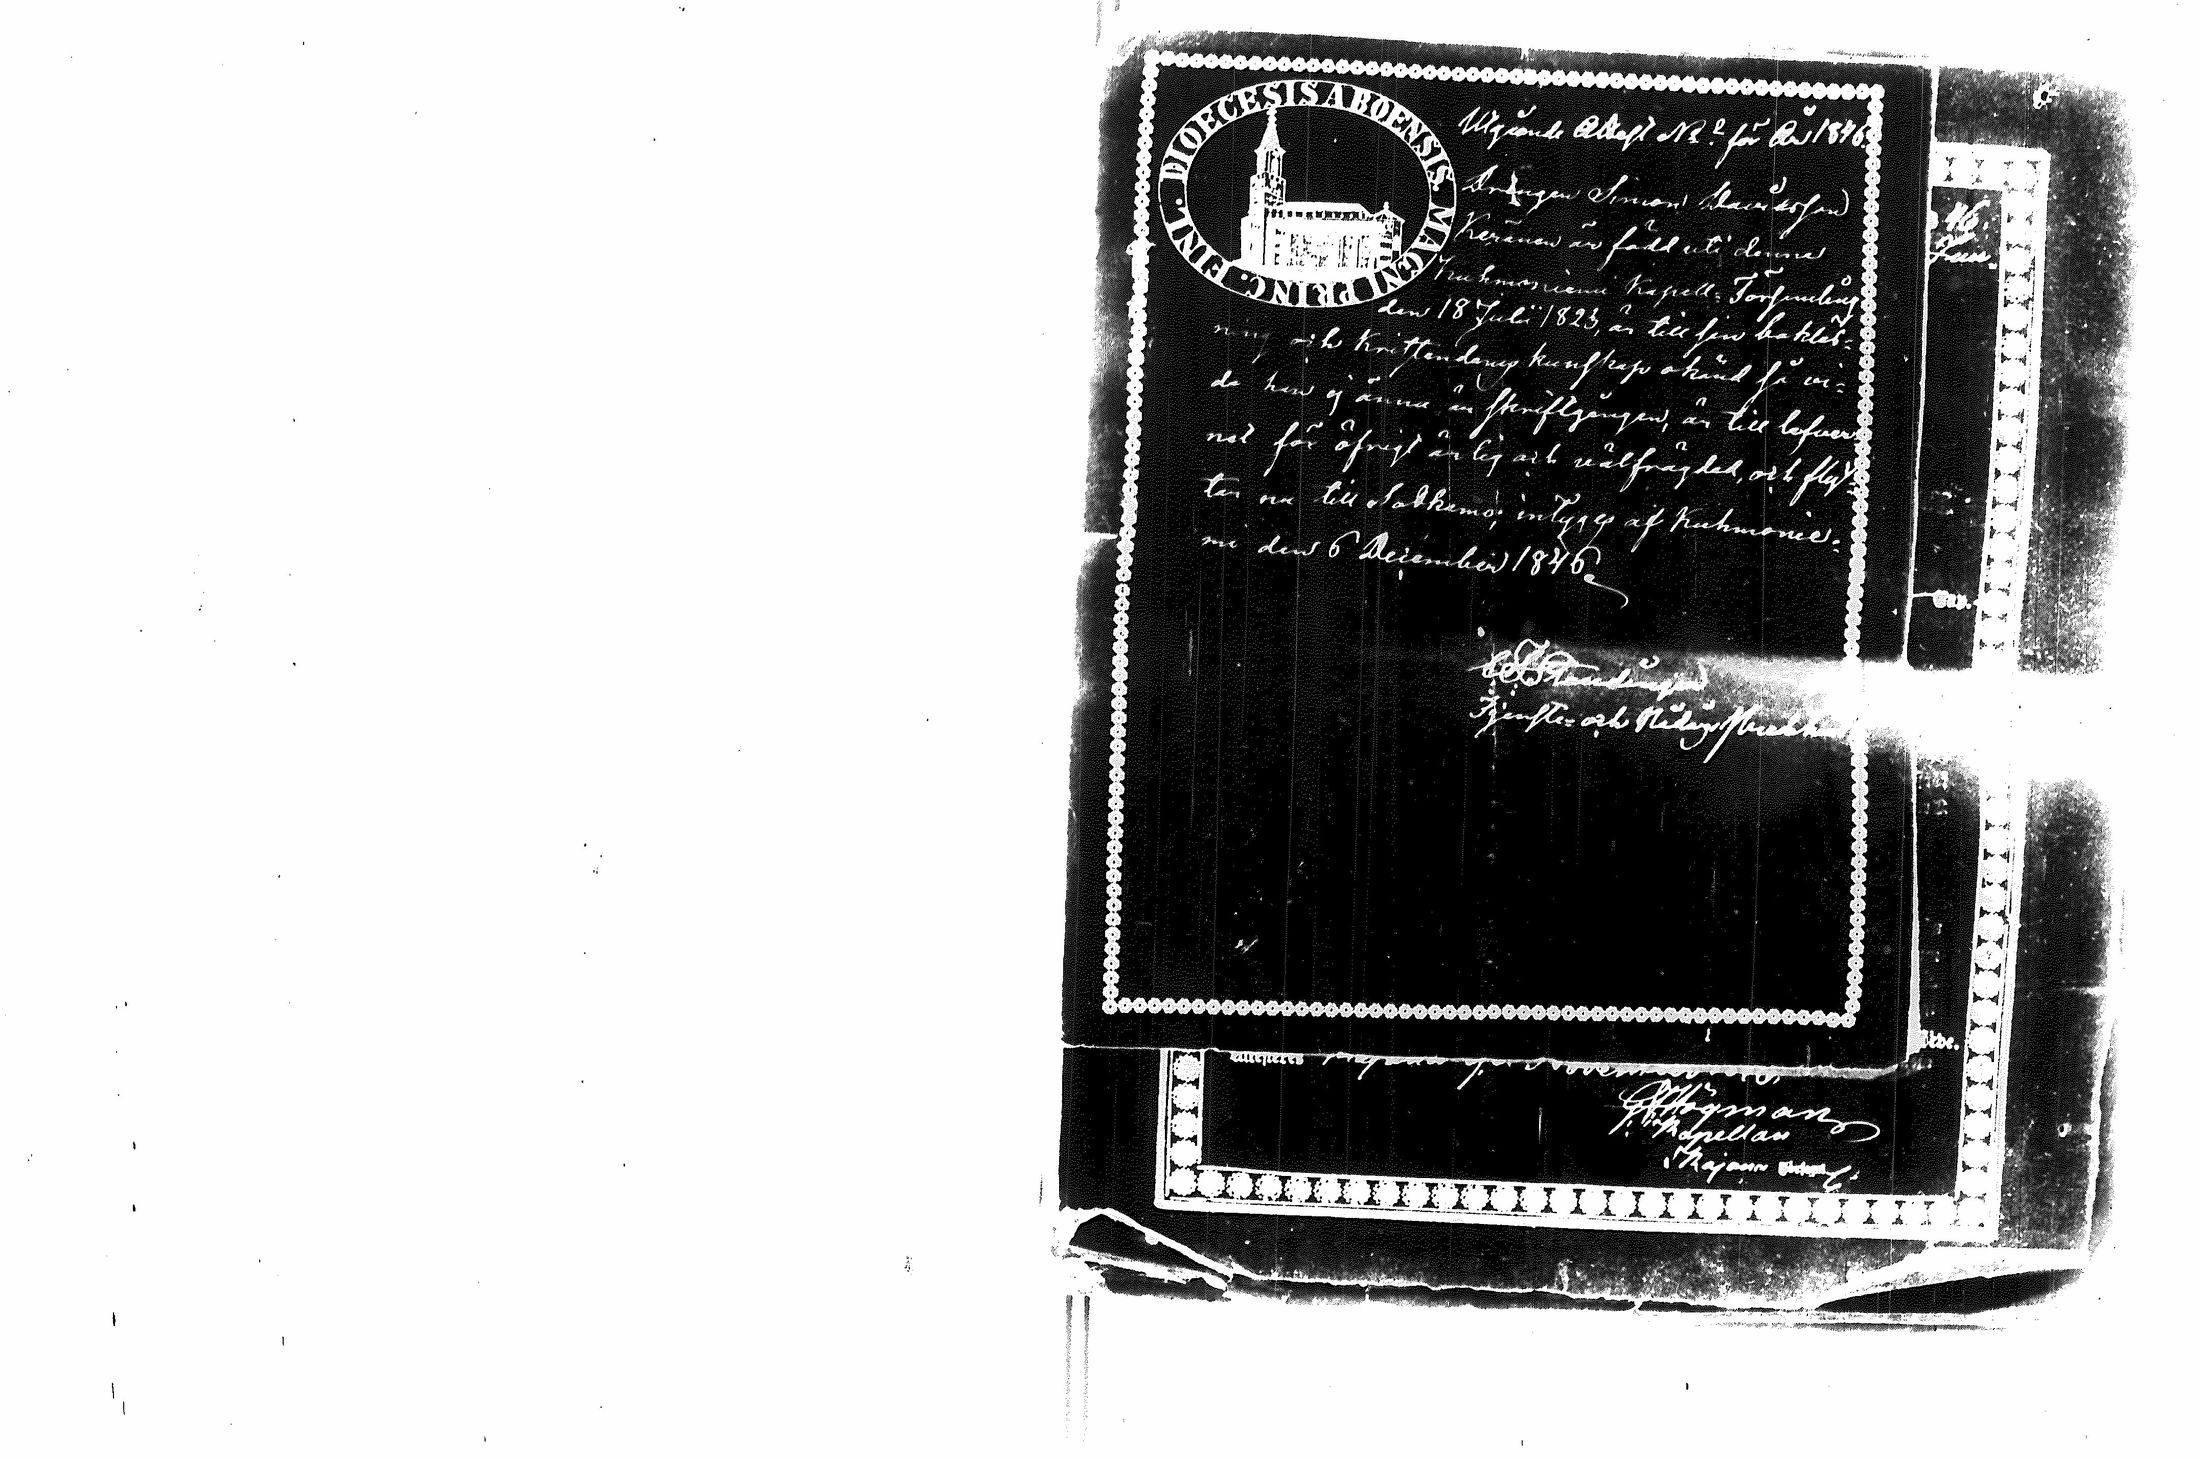 DIOECESIS ABOENSIS. MAGNI PRINC. FINL.
Utgående Attest No 2 för År 1846.
Drängen Simon Davidsson
Keränen är född uti denna
Kuhmoniemi Kapell-Församling
den 18 Julii 1823, är till sin bokläs-
ning och Kristendoms kunskap okänd så vi-
da han ej ännu är skriftgången, är till lefver-
net för öfrigt ärlig och välfrägdad, och flyt-
tar nu till Sotkamo; intygas af Kuhmonie-
mi den 6 December 1846.
Tjenste- och Nådårs Predikant
46.
Cap.
Attesteras November
Högman
Kapellan
i Kajana